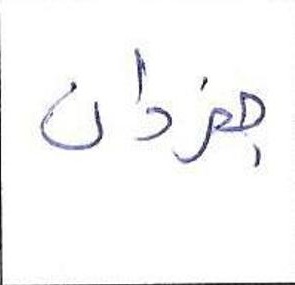 جعزدان